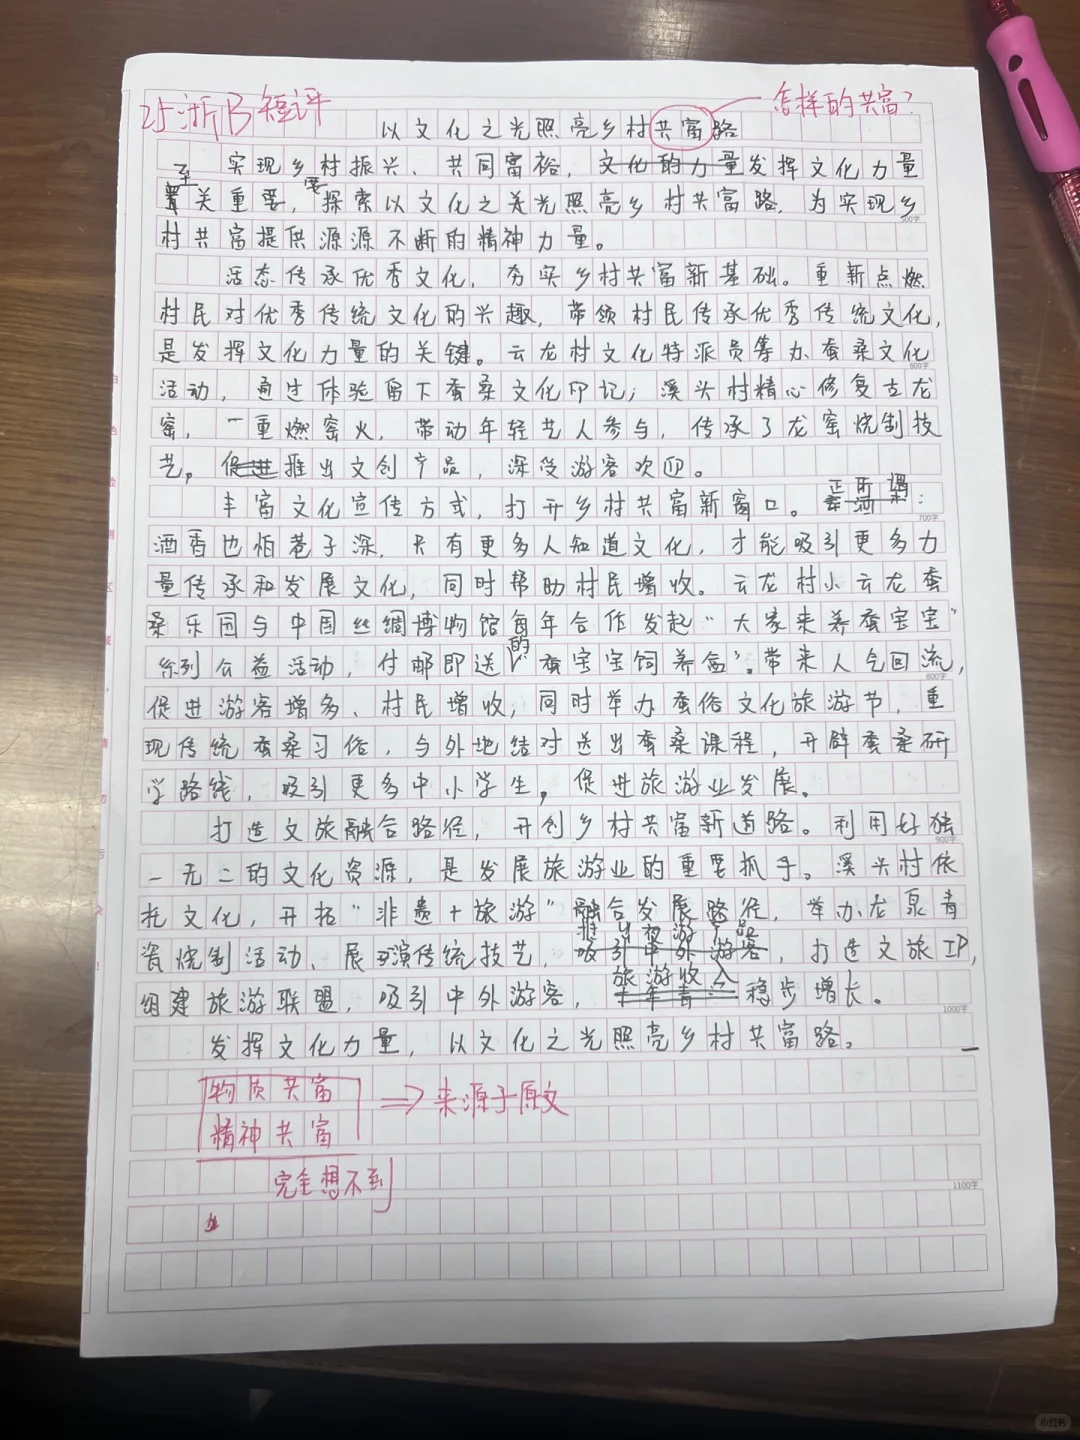 25浙B短评
怎样的共富？
以文化之光照亮乡村共富路
实现乡村振兴、共同富裕，文化的力量发挥文化力量
至关重要，要探索以文化之光照亮乡村共富路，为实现乡
500字
村共富提供源源不断的精神力量。
活态传承优秀文化，夯实乡村共富新基础。重新点燃
村民对优秀传统文化的兴趣，带领村民传承优秀传统文化，
是发挥文化力量的关键。云龙村文化特派员筹办蚕桑文化
600字
活动，通过体验留下蚕桑文化印记；溪头村精心修复古龙
窑，一重燃窑火，带动年轻艺人参与，传承了龙窑烧制技
艺，促进推出文创产品，深受游客欢迎。
丰富文化宣传方式，打开乡村共富新窗口。正所谓：
700字
酒香也怕巷子深，只有更多人知道文化，才能吸引更多力
量传承和发展文化，同时帮助村民增收。云龙村小云龙蚕
桑乐园与中国丝绸博物馆每年合作发起“大家来养蚕宝宝”
系列公益活动，付邮即送的“蚕宝宝饲养盒”。带来人气回流，
800字
促进游客增多、村民增收，同时举办蚕俗文化旅游节，重
现传统蚕桑习俗，与外地结对送出蚕桑课程，开辟蚕桑研
学路线，吸引更多中小学生，促进旅游业发展。
打造文旅融合路径，开创乡村共富新道路。利用好独
900字
一无二的文化资源，是发展旅游业的重要抓手。溪头村依
托文化，开拓“非遗+旅游”融合发展路径，举办龙泉青
瓷烧制活动、展演传统技艺，推出初游产品吸引中外游客，打造文旅IP，
组建旅游联盟，吸引中外游客，旅游收入稳步增长。
1000字
发挥文化力量，以文化之光照亮乡村共富路。
物质共富
精神共富
=> 来源于原文
完全想不到
1100字
小红书